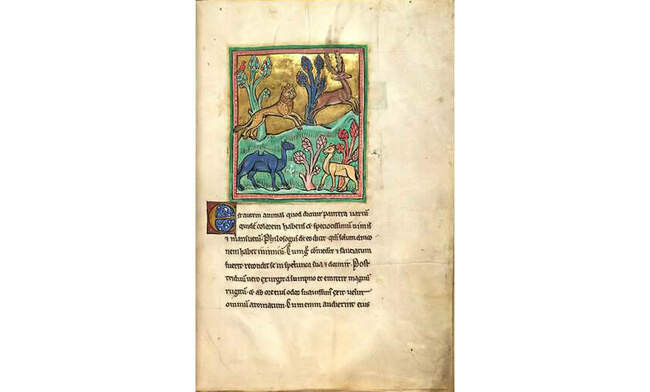 animal quod dicitur pantera uarium
quidē colorem habens & speciosissimū nimis
& mansuetū. Phisiologus de eo dicit qd solum draco
nem habet inimicū. Cum g° comederit & saciatum
fuerit recondit se in spelunca sua & dormit. Post
triduū uero exurgit a sompno et emittit magnū
rugitū. & ab ore eius odor suauissimus exit uelut
omniū aromatum. Cum enim audierint eius